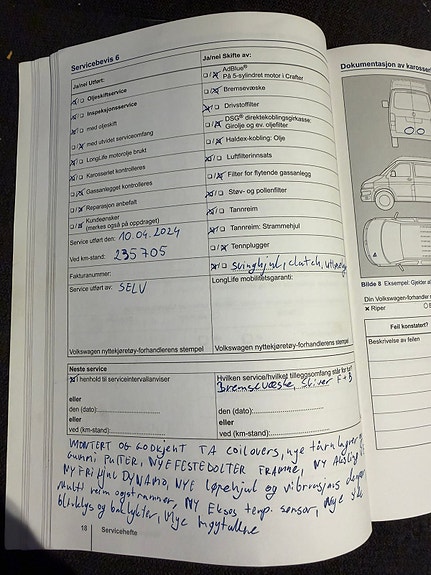 Servicebevis 6
Ja/nei Utført:
Oljeskiftservice
Inspeksjonsservice
med oljeskift
med utvidet serviceomfang
LongLife motorolje brukt
Karosseriet kontrolleres
Gassanlegget kontrolleres
Reparasjon anbefalt
Kundeønsker
(merkes også på oppdraget)
Service utført den: 10.04.2024
Ved km-stand: 235705
Fakturanummer:
Service utført av: SELV
Volkswagen nyttekjøretøy-forhandlerens stempel
Ja/nei Skifte av:
AdBlue®
På 5-sylindret motor i Crafter
Bremsevæske
Drivstoffilter
DSG® direktekoblingsgirkasse:
Girolje og ev. oljefilter
Haldex-kobling: Olje
Luftfilterinnsats
Filter for flytende gassanlegg
Støv- og pollenfilter
Tannreim
Tannreim: Strammehjul
Tennplugger
svinghjul, clutch,
LongLife mobilitetsgaranti:
Volkswagen nyttekjøretøy-forhandlerens stempel
Neste service
I henhold til serviceintervallanviser
eller
den (dato):
eller
ved (km-stand):
Hvilken service/hvilket tilleggsomfang står for tur?
Bremsevæske, Skiver F + B
den (dato):
eller
ved (km-stand):
MONTERT OG GODKJENT TA COILOVERS, nye tårnlagre
Gummi PUTTER, NYE FESTEBOLTER FRAMME, NY
NY FRIHJUL DYNAMO, NYE Løpehjul og vibrasjons
Multi reim og strammer, NY Eksos temp. sensor, Nye
blinklys og baklykter, Nye
18 Servicehefte
Dokumentasjon av karosseri
Bilde 8 Eksempel: Gjelder
Din Volkswagen-forhandler
Riper
Feil konstatert?
Beskrivelse av feilen